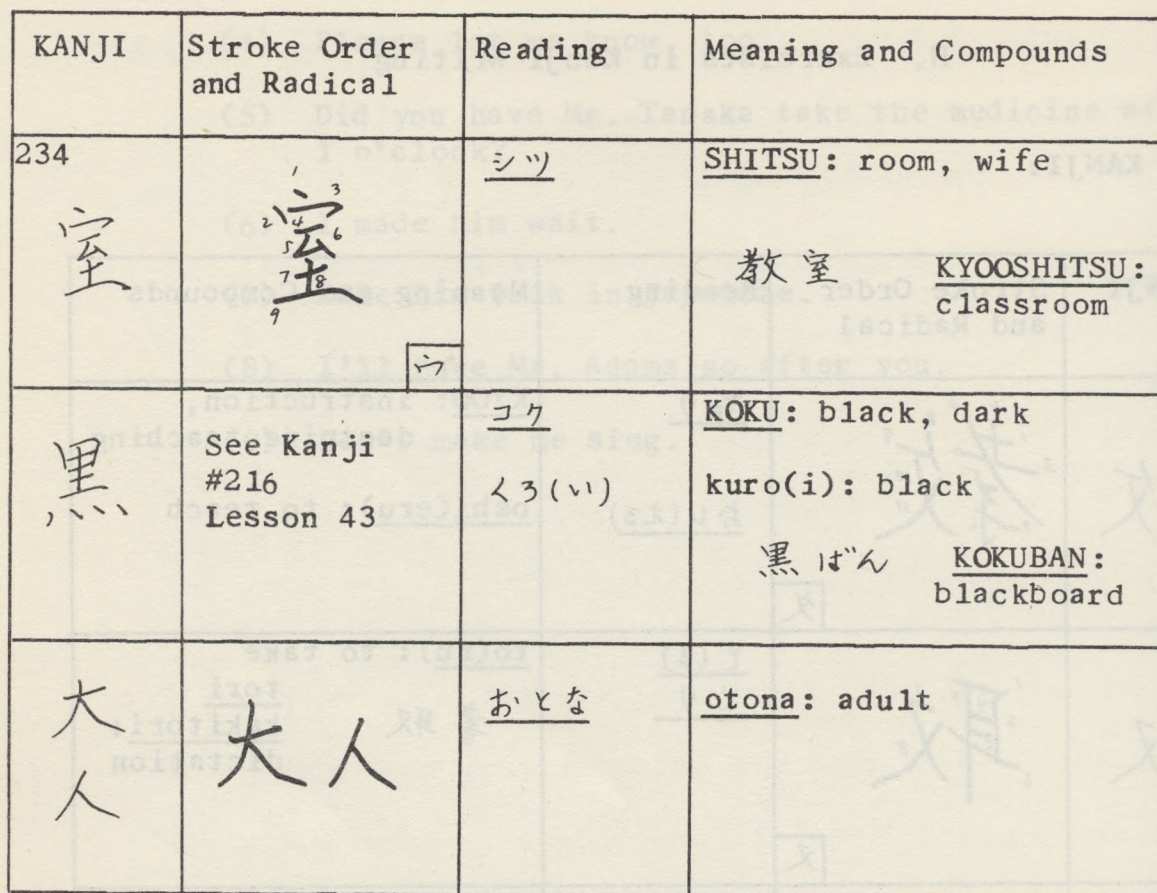 KANJI
Stroke Order and Radical
Reading
Meaning and Compounds
234
室
室
1 2 3 4 5 6 7 8 9
宀
シツ
SHITSU: room, wife
教室 KYOOSHITSU:
classroom
黒
See Kanji
#216
Lesson 43
コク
くろ(い)
KOKU: black, dark
kuro(i): black
黒ばん KOKUBAN:
blackboard
大
人
大人
おとな
otona: adult